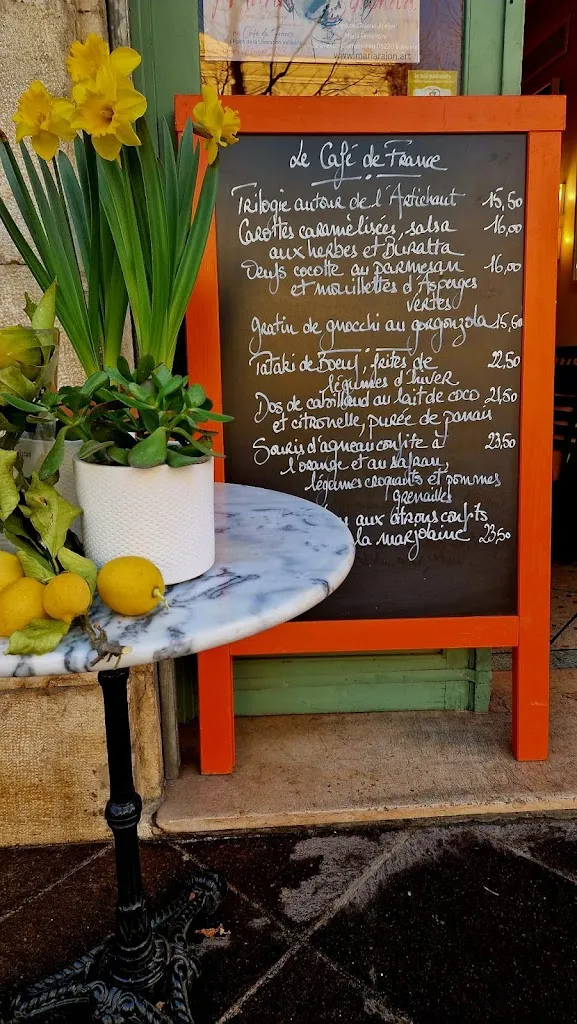 www.mariarajon.art
Le Café de France
Trilogie autour de l'Artichaut 15,50
Carottes caramèlisées, salsa 16,00
aux herbes et Buratta
Oeufs cocotte au parmesan 16,00
et mouillettes d'Asperges
vertes
gratin de gnocchi au gorgonzola 15,50
Tataki de Boeuf, frites de 22,50
légumes d'hiver
Dos de cabillaud au lait de coco 21,50
et citronelle, purée de panais
Souris d'agneau confite à 23,50
l'orange et au safran,
légumes croquants et pommes
grenailles
aux citrons confits
la marjolaine 23,50